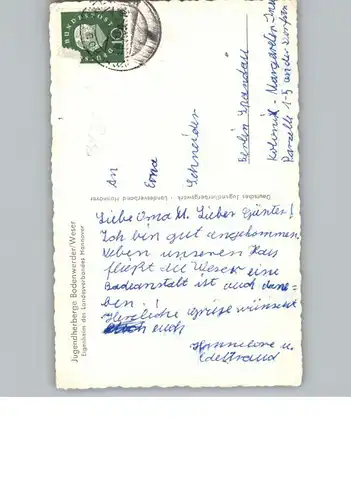 Jugendherberge Bodenwerder/Weser
Eigenheim des Landesverbandes Hannover
Deutsches Jugendherbergswerk - Landesverband Hannover
BUNDESPOST
10
Liebe Oma u. Lieber Günter!
Ich bin gut angekommen
Neben unseren Haus
fließt die Weser eine
Badeanstalt ist auch dane=
ben!!
Herzliche Grüße wünscht
euch
Hannelore u.
Edeltraud
An
Erna
Schneider
Berlin Spandau
Kolonie - Margareten
Parzelle 1-3 an der